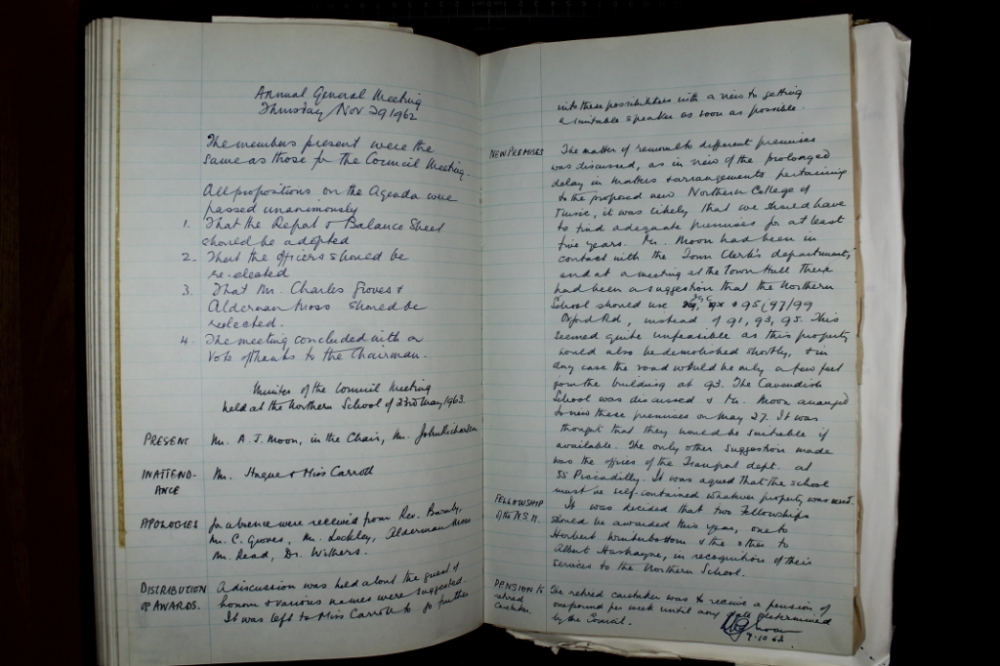 Annual General Meeting
Thursday Nov 29 1962
The members present were the
same as those for the Council Meeting.
All propositions on the Agenda were
passed unanimously
1. That the Report & Balance Sheet
should be adopted
2. That the officers should be
re-elected
3. That Mr. Charles Groves &
Alderman Moss should be
reelected.
4. The meeting concluded with a
vote of thanks to the Chairman.
Minutes of the Council Meeting
held at the Northern School of 23rd May 1963.
PRESENT Mr. A. J. Moon, in the Chair, Mr. John Richardson
IN ATTEND-
ANCE Mr. Hague & Miss Carroll
APOLOGIES for absence were received from Rev.
Mr. C. Groves, Mr. Lockley, Alderman Moss
Mr. Read, Dr. Withers.
DISTRIBUTION
OF AWARDS. A discussion was held about the guest of
honour & various names were suggested.
It was left to Miss Carroll to go further
into these possibilities with a view to getting
a suitable speaker as soon as possible.
NEW PREMISES The matter of removal to different premises
was discussed, as in view of the prolonged
delay in matters & arrangements pertaining
to the proposed new Northern College of
Music, it was likely that we should have
to find adequate premises for at least
five years. Mr. Moon had been in
contact with the Town Clerk's department,
and at a meeting at the Town Hall there
had been a suggestion that the Northern
School should use & 95 (97/99
Oxford Rd, instead of 91, 93, 95. This
seemed quite unfeasible as this property
would also be demolished shortly, & in
any case the road would be only a few feet
from the building at 93. The Cavendish
School was discussed & Mr. Moon arranged
to view these premises on May 27. It was
thought that they would be suitable if
available. The only other suggestion made
was the offices of the Transport dept. at
55 Piccadilly. It was agreed that the school
must be self-contained whatever property was used.
FELLOWSHIP
of the N.S.M. It was decided that two Fellowships
should be awarded this year, one to
Herbert Winterbottom & the other to
Albert Haskayne, in recognition of their
services to the Northern School.
PENSION to
retired
caretaker. The retired caretaker was to receive a pension of
one pound per week until any date determined
by the Council.
Moon
9.10.63